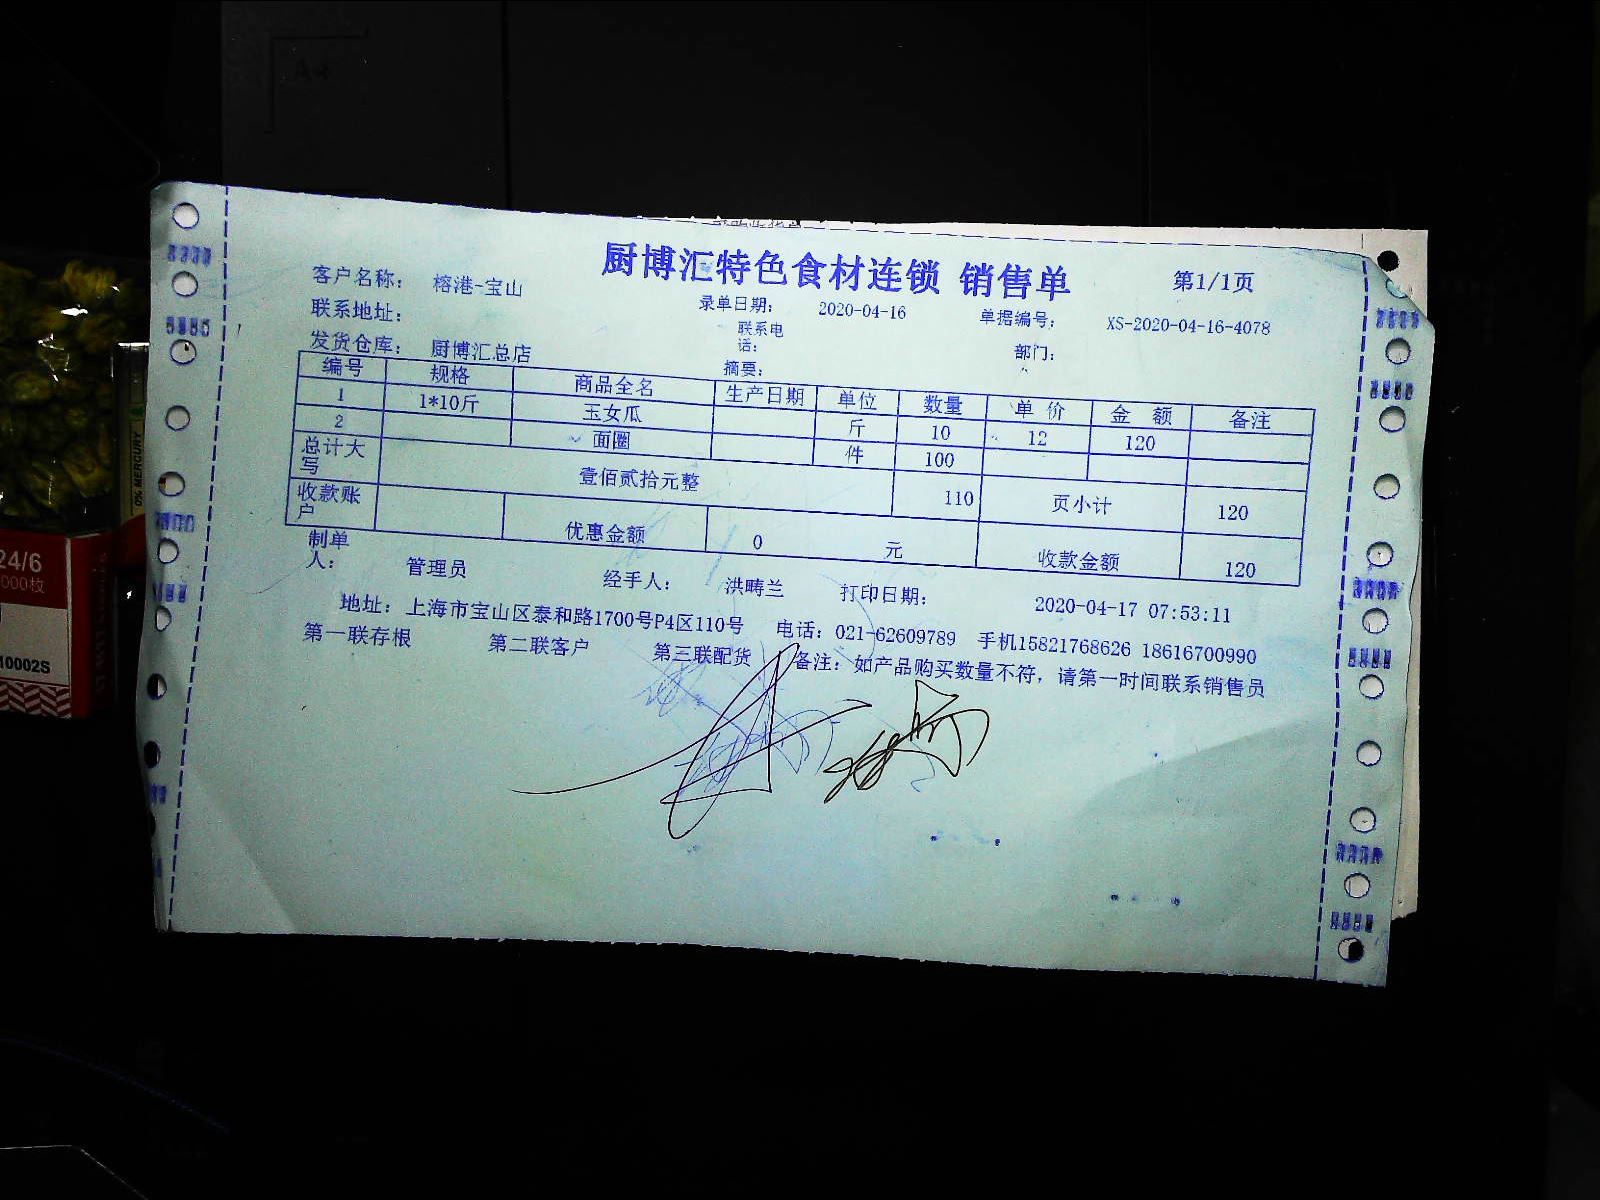 厨博汇特色食材连锁 销售单 第1/1页
客户名称： 榕港-宝山 录单日期： 2020-04-16 单据编号： XS-2020-04-16-4078
联系地址： 联系电话： 部门：
发货仓库： 厨博汇总店 摘要：
编号 规格 商品全名 生产日期 单位 数量 单价 金额 备注
1 1*10斤 玉女瓜 斤 10 12 120
2 面圈 件 100
总计大写 壹佰贰拾元整 110 页小计 120
收款账户 优惠金额 0 元 收款金额 120
制单人： 管理员 经手人： 洪畴兰 打印日期： 2020-04-17 07:53:11
地址：上海市宝山区泰和路1700号P4区110号 电话：021-62609789 手机15821768626 18616700990
第一联存根 第二联客户 第三联配货 备注：如产品购买数量不符，请第一时间联系销售员
24/6
000枚
10002S
0% MERCURY